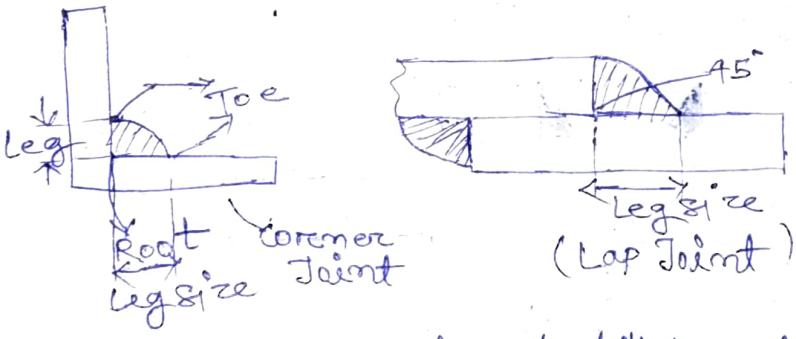 Toe
Leg
Root
Leg size
Corner
Joint
45°
Leg size
(Lap Joint)